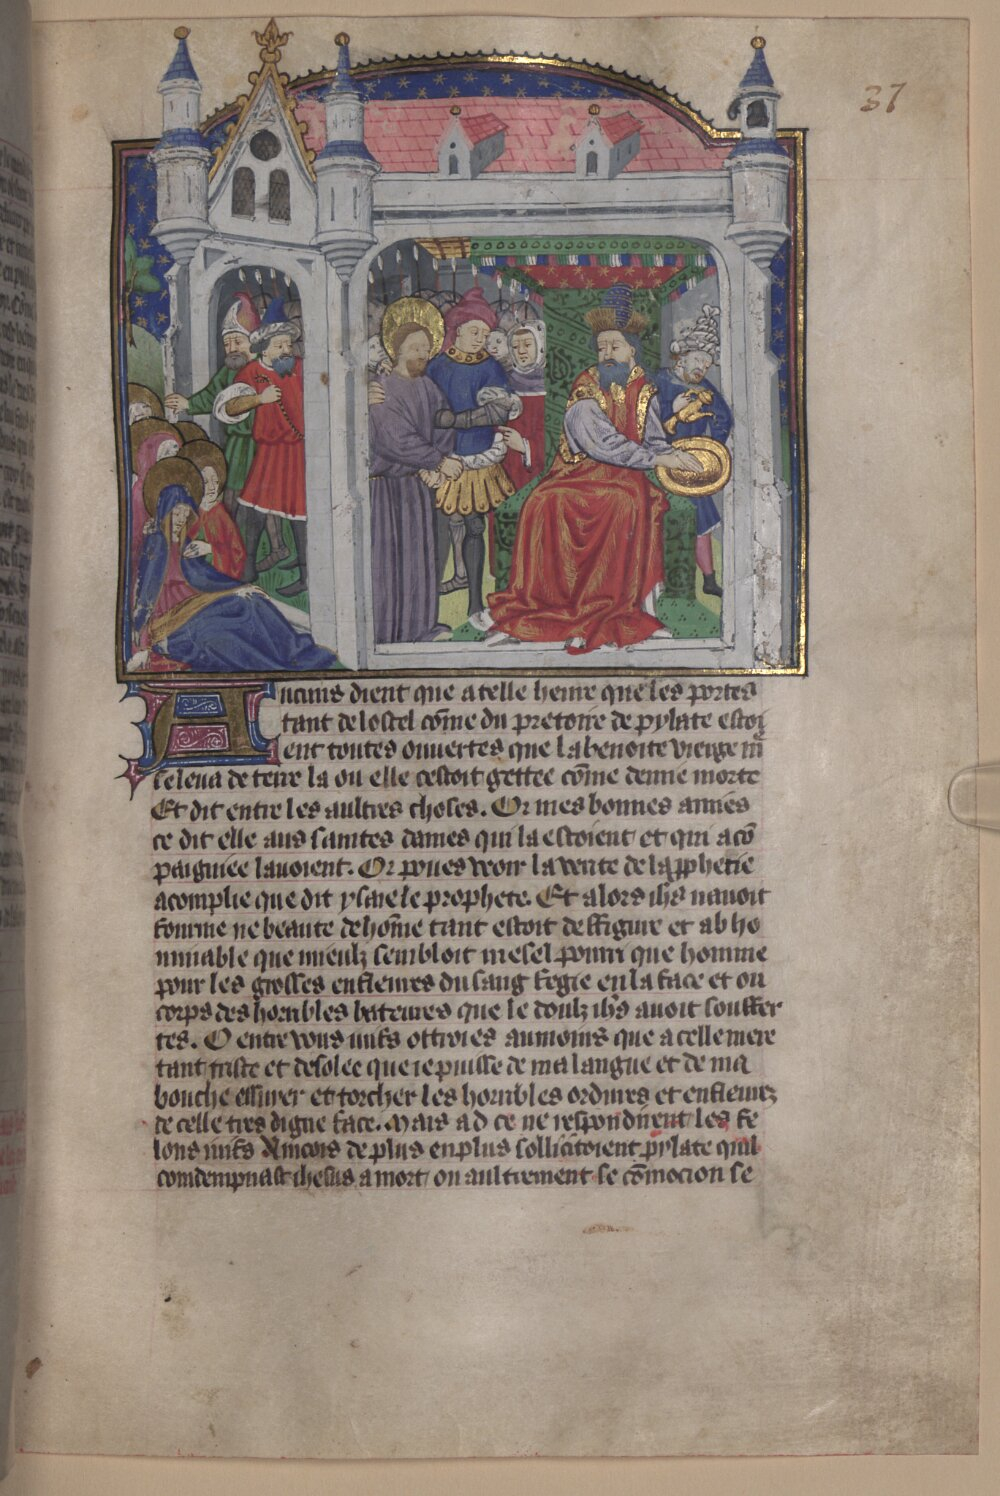 37
Aucuns dient que a telle heure que les portes
tant de lostel cōme du pretoire de pylate estoi
ent toutes ouvertes que la benoite vierge m̄
se leva de terre la ou elle cestoit gettee cōme demie morte
Et dit entre les aultres choses. Or mes bonnes amies
ce dit elle aus saintes dames qui la estoient et qui acō
paigniee lavoient. Or poues veoir la verite de la p̄phetie
acomplie que dit ysaie le prophete. Et alors ih̄s navoit
fourme ne beaute dehōme tant estoit deffigure et abho
minable que mieulx sembloit mesel pourri que homme
pour les grosses enfleures du sang fegie en la face et ou
corps des horribles bateures que le doulz ih̄s avoit souffer
tes. O entre vous iuifs ottroies aumoins que a celle mere
tant triste et desolee que ie puisse de ma langue et de ma
bouche essuyer et torcher les horribles ordures et enfleures
de celle tres digne face. Mais ad ce ne respondirent les fe
lons iuifs Aincois de plus en plus sollicitoient pylate quil
condempnast ihesus a mort / ou aultrement se cōmocion se